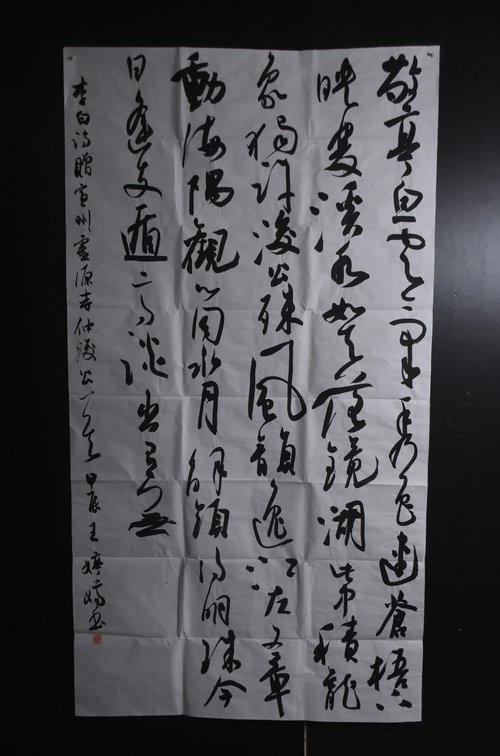 敬亭白雲氣秀色連蒼梧下
映雙溪水如天落鏡湖此中積龍
象獨許浚公殊風韻逸江左文章
動海隅觀心同水月解領得明珠今
日逢支遁高談出有無
李白詩贈宣州靈源寺仲浚公一首 甲辰 王書